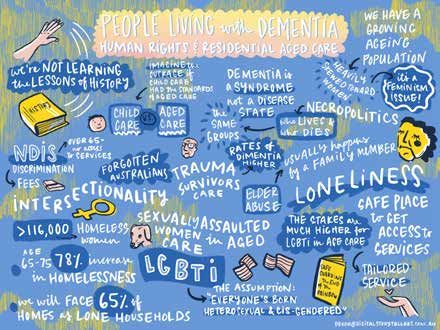 PEOPLE LIVING with DEMENTIA
HUMAN RIGHTS & RESIDENTIAL AGED CARE
WE HAVE A
GROWING
AGEING
POPULATION
HEAVILY
SKEWED TOWARD
WOMEN
it's a
FEMINISM
ISSUE!
we're NOT LEARNING
the LESSONS of HISTORY
HISTORY
IMAGINE the
OUTRAGE if
CHILD CARE
HAD the STANDARDS
of AGED CARE
CHILD
CARE
VS
AGED
CARE
DEMENTIA is
A SYNDROME
not a DISEASE
STATE
the
SAME
GROUPS
RATES of
DEMENTIA
HIGHER
NECROPOLITICS
WHO LIVES &
WHO DIES
usually happens
by a FAMILY MEMBER
ELDER
ABUSE
NDiS
DISCRIMINATION
FEES
OVER 65-
no ACCESS
to SERVICES
FORGOTTEN
AUSTRALIANS
TRAUMA
SURVIVORS
CARE
INTERSECTIONALITY
LONELINESS
>116,000
HOMELESS
women
SEXUALLY ASSAULTED
WOMEN in AGED
CARE
THE STAKES are
MUCH HIGHER for
LGBTI in AGE CARE
SAFE PLACE
to GET
ACCESS to
SERVICES
TAILORED
SERVICE
AGE
65-75
78% increase
in HOMELESSNESS
we will FACE 65% of
HOMES as LONE HOUSEHOLDS
LGBTi
THE ASSUMPTION:
"EVERYONE'S BORN
HETEROSEXUAL & CIS-GENDERED"
SAFE
GUARDING
the END of
the RAINBOW